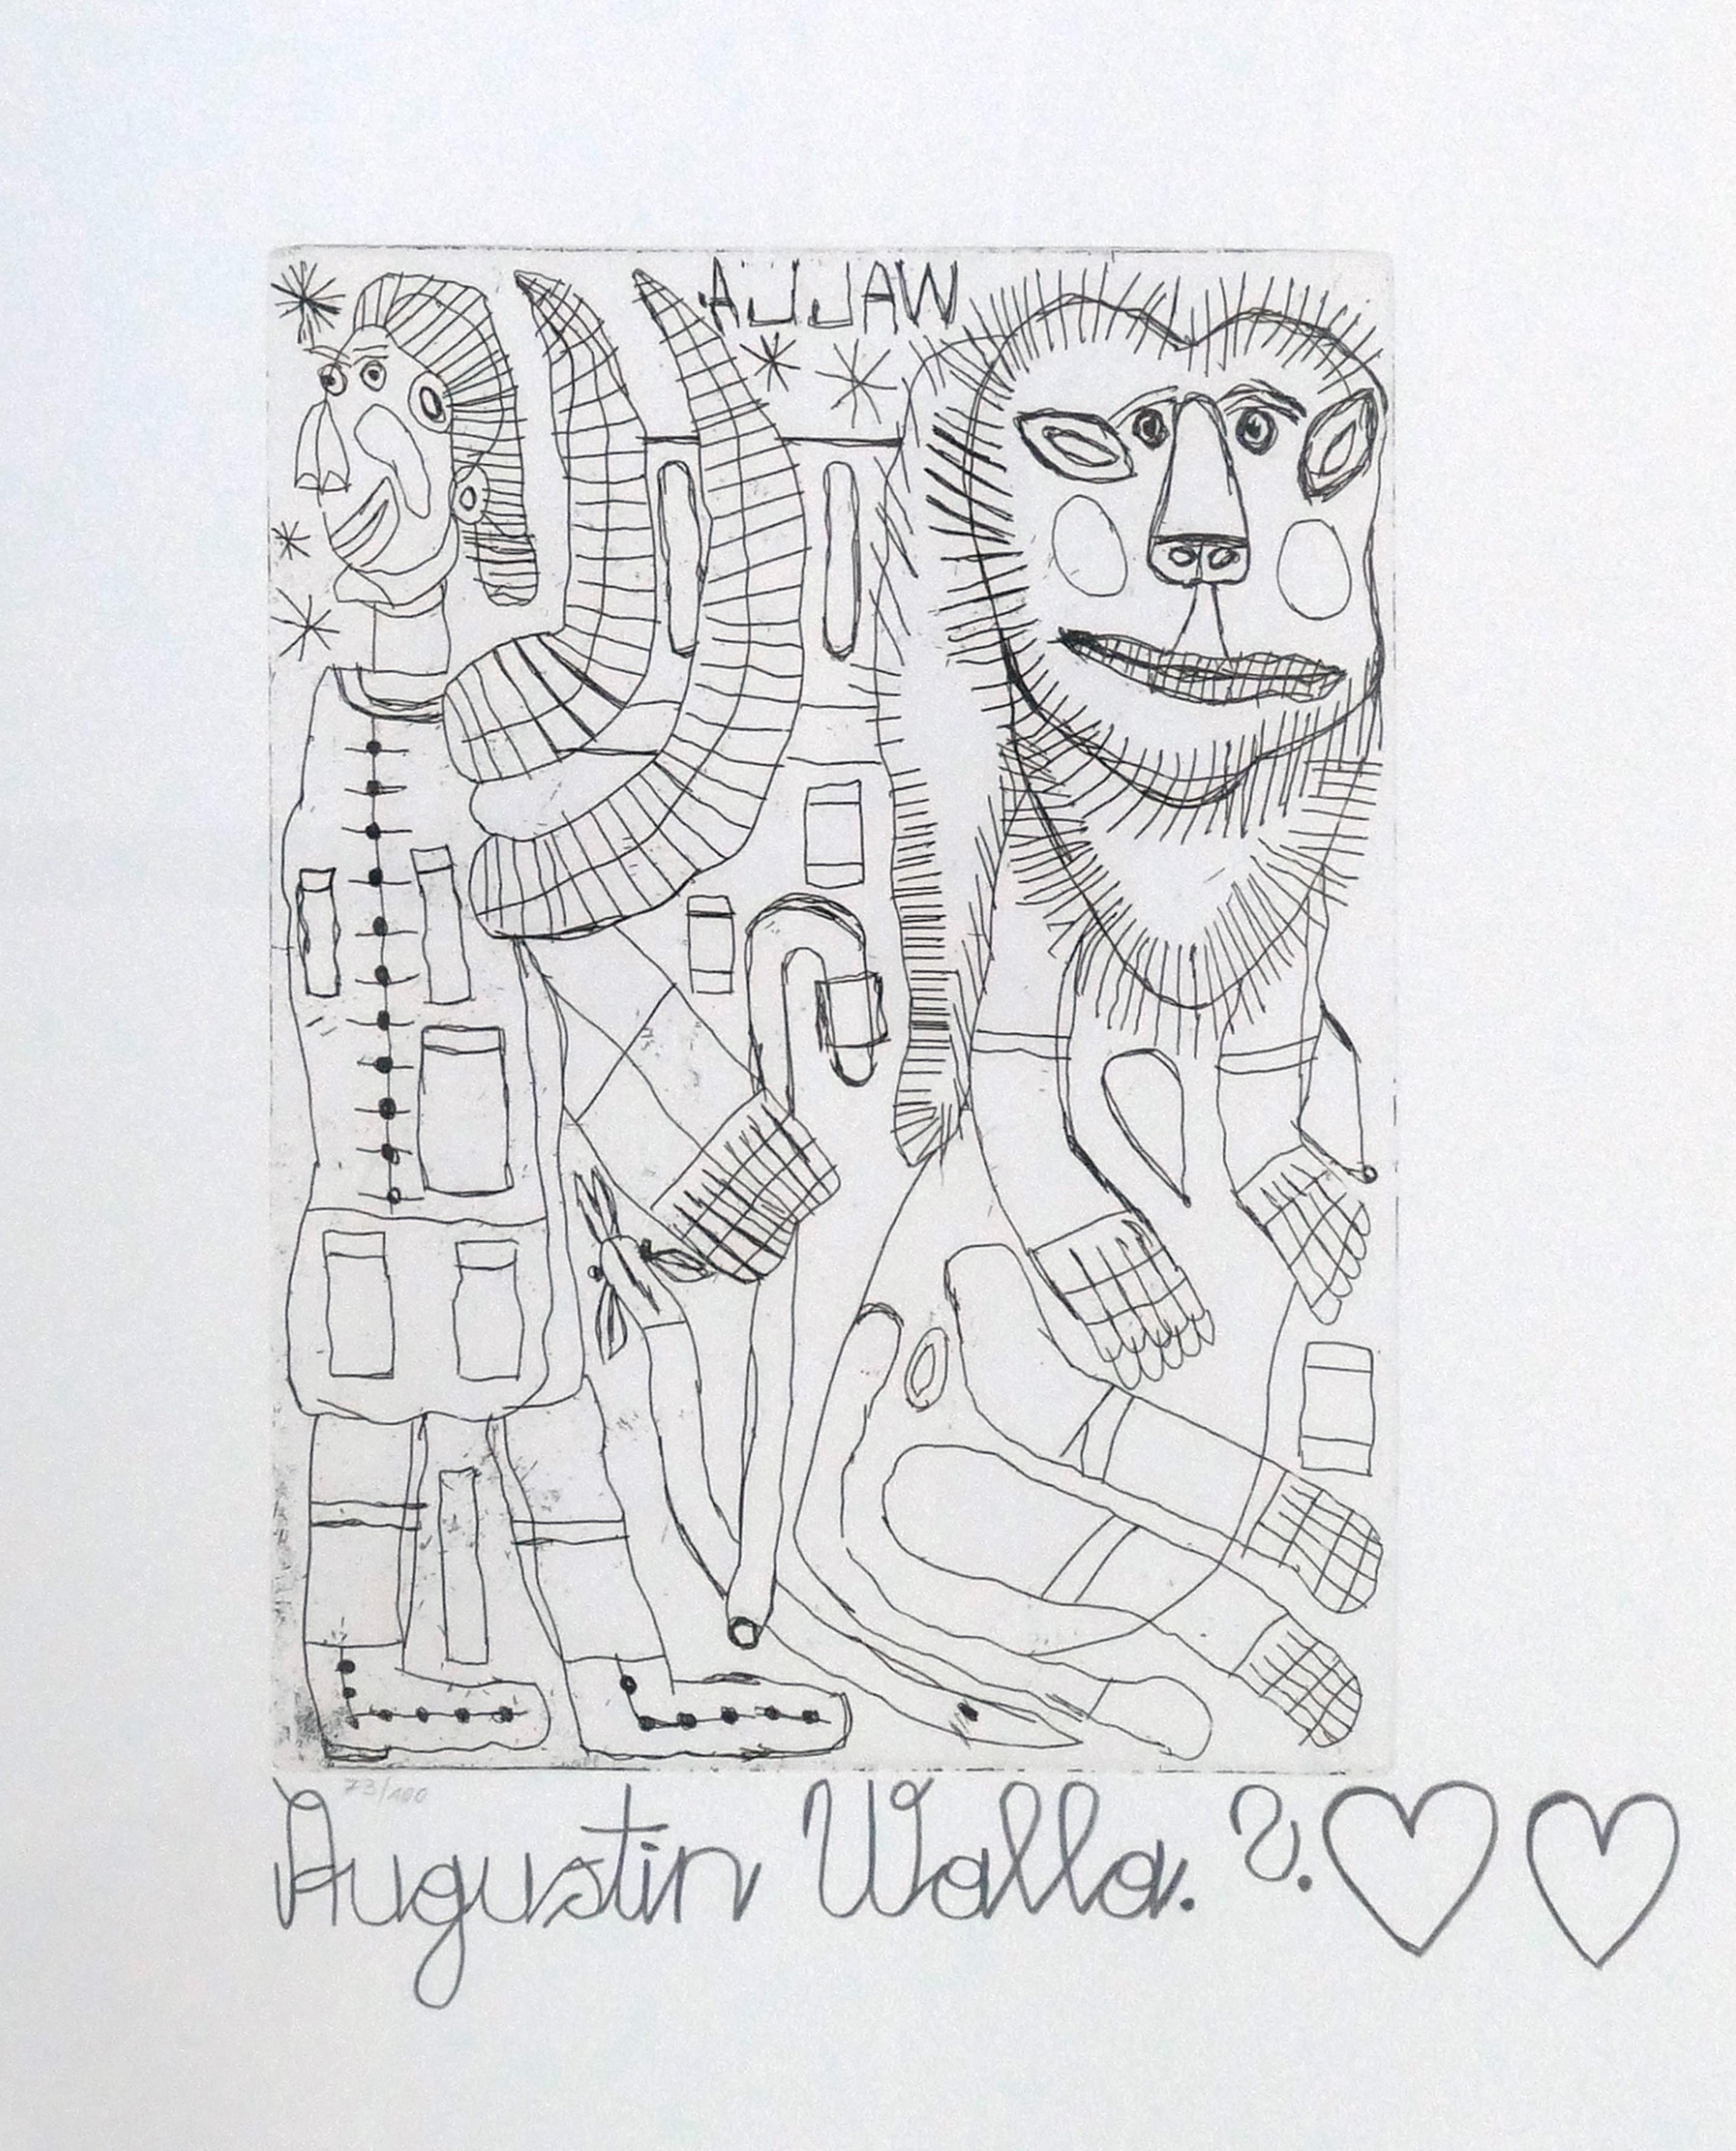 AJJAW
73/100
Augustin Walla. ?.